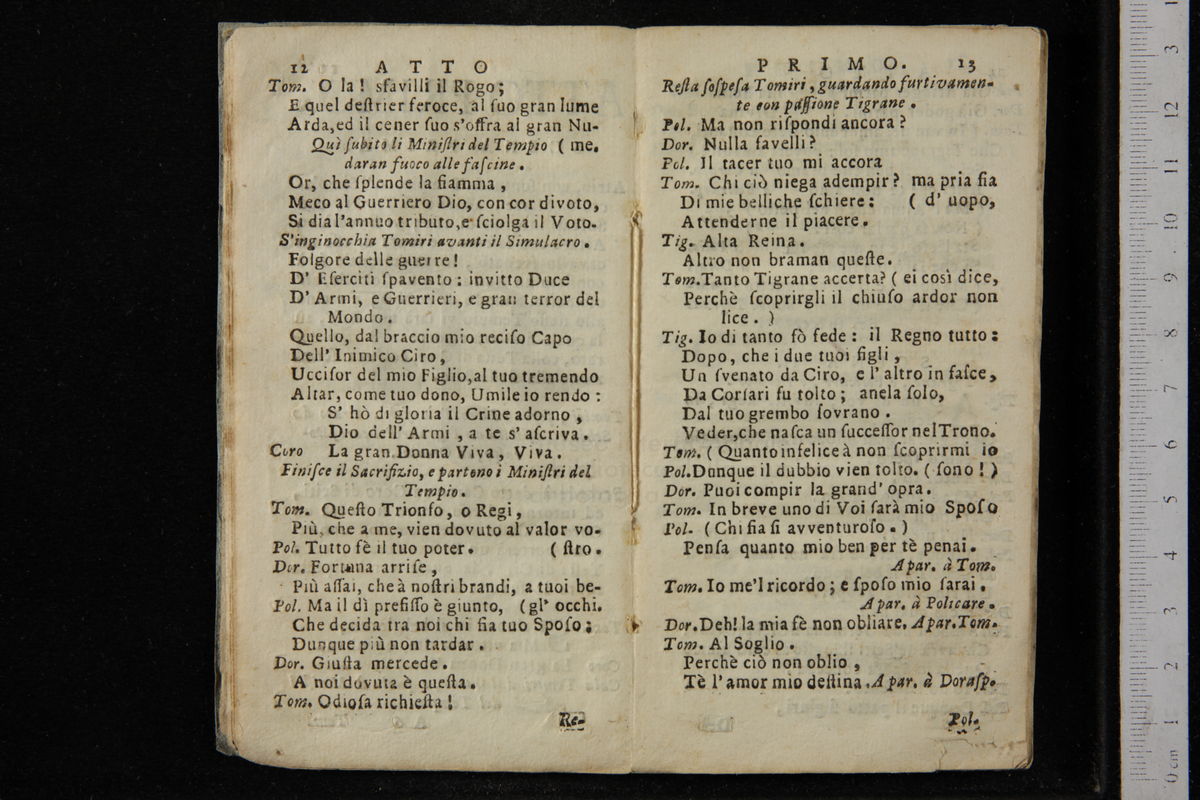 12 ATTO
Tom. O la! sfavilli il Rogo;
E quel deſtrier feroce, al ſuo gran lume
Arda, ed il cener ſuo s'offra al gran Nu-
Quì ſubito li Miniſtri del Tempio ( me.
daran fuoco alle faſcine.
Or, che ſplende la fiamma,
Meco al Guerriero Dio, con cor divoto,
Si dia l'annuo tributo, e ſciolga il Voto.
S'inginocchia Tomiri avanti il Simulacro.
Folgore delle guerre!
D' Eſerciti ſpavento: invitto Duce
D' Armi, e Guerrieri, e gran terror del
Mondo.
Quello, dal braccio mio reciſo Capo
Dell' Inimico Ciro,
Ucciſor del mio Figlio, al tuo tremendo
Altar, come tuo dono, Umile io rendo:
S' hò di gloria il Crine adorno,
Dio dell' Armi, a te s' aſcriva.
Coro La gran Donna Viva, Viva.
Finiſce il Sacrifizio, e partono i Miniſtri del
Tempio.
Tom. Queſto Trionfo, o Regi,
Più, che a me, vien dovuto al valor vo-
Pol. Tutto fè il tuo poter. ( ſtro.
Dor. Fortuna arriſe,
Più aſſai, che à noſtri brandi, a tuoi be-
Pol. Ma il dì prefiſſo è giunto, (gl' occhi.
Che decida tra noi chi ſia tuo Spoſo;
Dunque più non tardar.
Dor. Giuſta mercede.
A noi dovuta è queſta.
Tom. Odioſa richieſta!
Re-
PRIMO. 13
Reſta ſoſpeſa Tomiri, guardando furtivamen-
te con paſſione Tigrane.
Pol. Ma non riſpondi ancora?
Dor. Nulla favelli?
Pol. Il tacer tuo mi accora
Tom. Chi ciò niega adempir? ma pria ſia
Di mie belliche ſchiere: ( d' uopo,
Attenderne il piacere.
Tig. Alta Reina.
Altro non braman queſte.
Tom. Tanto Tigrane accerta? ( ei così dice,
Perchè ſcoprirgli il chiuſo ardor non
lice. )
Tig. Io di tanto fò fede: il Regno tutto:
Dopo, che i due tuoi figli,
Un ſvenato da Ciro, e l' altro in faſce,
Da Corſari fu tolto; anela ſolo,
Dal tuo grembo ſovrano.
Veder, che naſca un ſucceſſor nel Trono.
Tom. ( Quanto infelice à non ſcoprirmi io
Pol. Dunque il dubbio vien tolto. ( ſono! )
Dor. Puoi compir la grand' opra.
Tom. In breve uno di Voi farà mio Spoſo
Pol. ( Chi ſia ſi avventuroſo. )
Penſa quanto mio ben per tè penai.
A par. à Tom.
Tom. Io me'l ricordo; e ſpoſo mio ſarai.
A par. à Policare.
Dor. Deh! la mia fè non obliare. A par. Tom.
Tom. Al Soglio.
Perchè ciò non oblio,
Tè l'amor mio deſtina. A par. à Doraſp.
Pol.